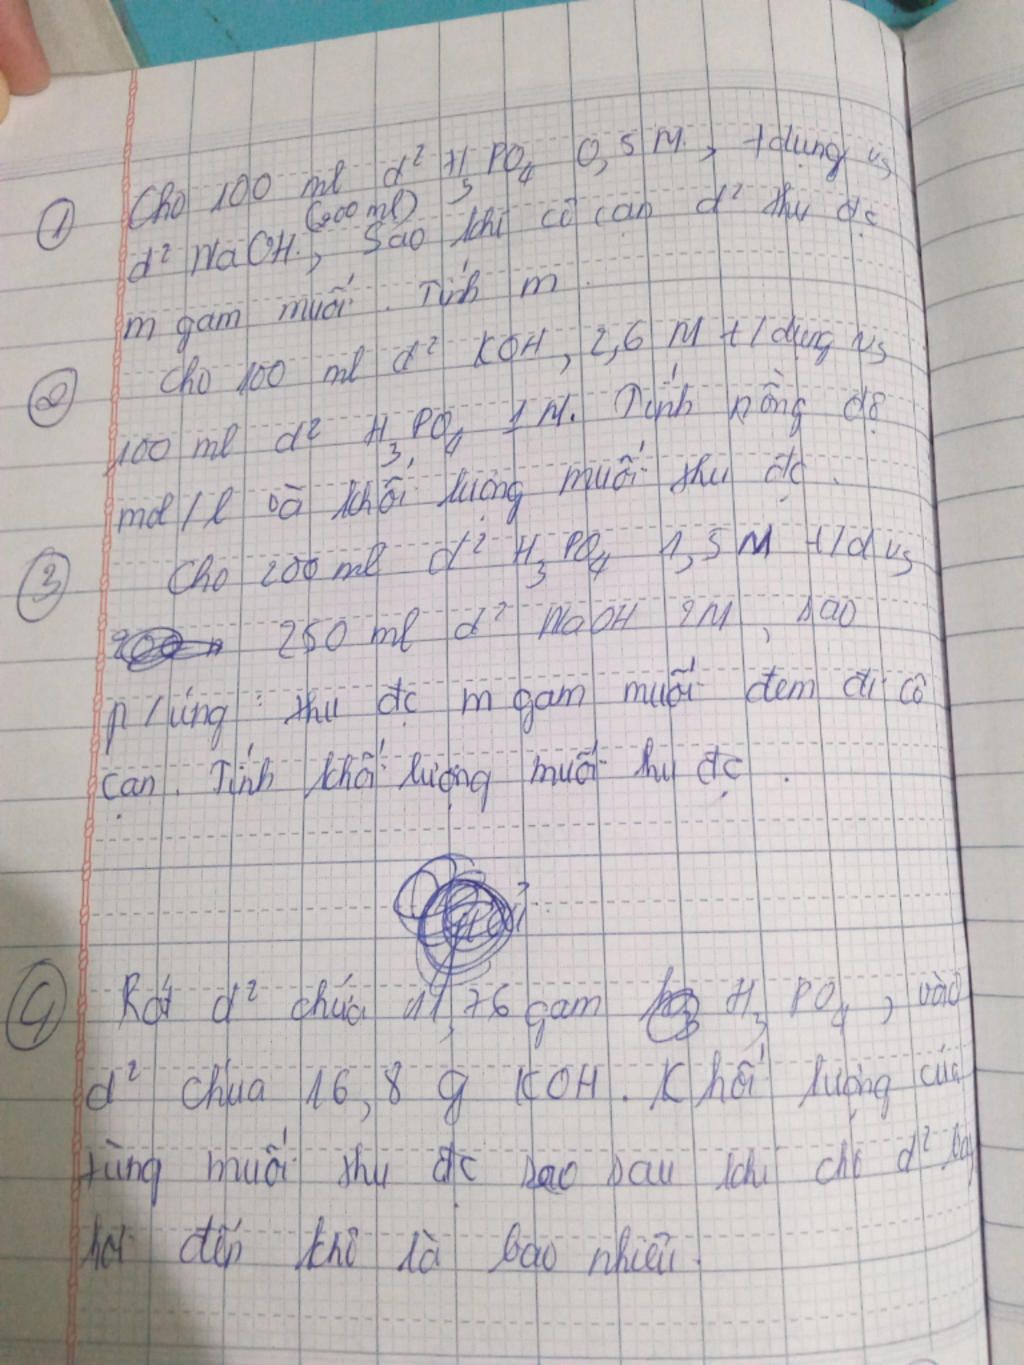 ① Cho 100 ml d² H₃PO₄ 0,5M, t dụng vs
(200 ml)
d² NaOH, Sao khi cô cạn d² thu đc
m gam muối. Tính m.
② Cho 100 ml d² KOH, 2,6 M t/dụng vs
100 ml d² H₃PO₄ 1M. Tính nồng độ
mol/l và khối lượng muối thu đc.
③ Cho 200 ml d² H₃PO₄ 1,5M t/d vs
250 ml d² NaOH 2M, sao
p/ứng: thu đc m gam muối đem đi cô
cạn. Tính khối lượng muối thu đc.
④ Rót d² chứa 11,76 gam H₃PO₄, vào
d² chứa 16,8 g KOH. Khối lượng của
từng muối thu đc sao sau khi cho d² bay
hơi đến khô là bao nhiêu.